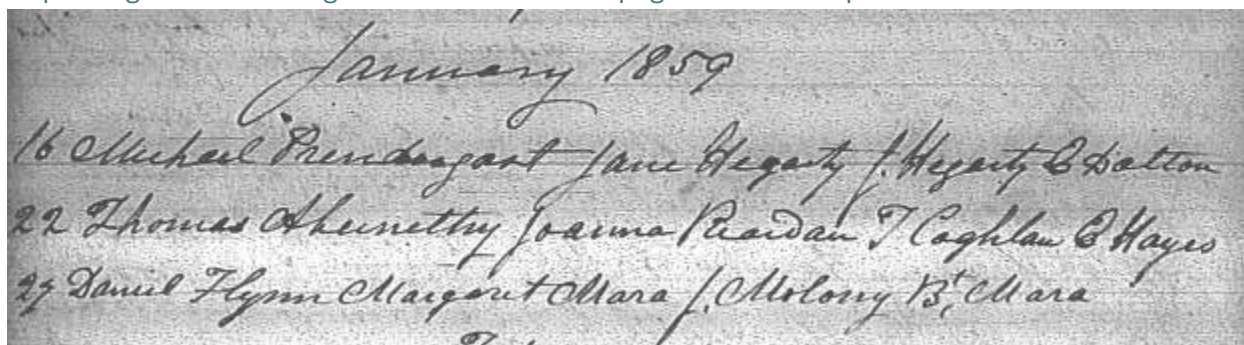 January 1859
16 Michael Prendergast Jane Hegarty J. Hegarty C Dalton
22 Thomas Abernethy Joanna Reardan T Coghlan C Hayes
27 Daniel Flynn Margaret Mara J. Molony Bt. Mara